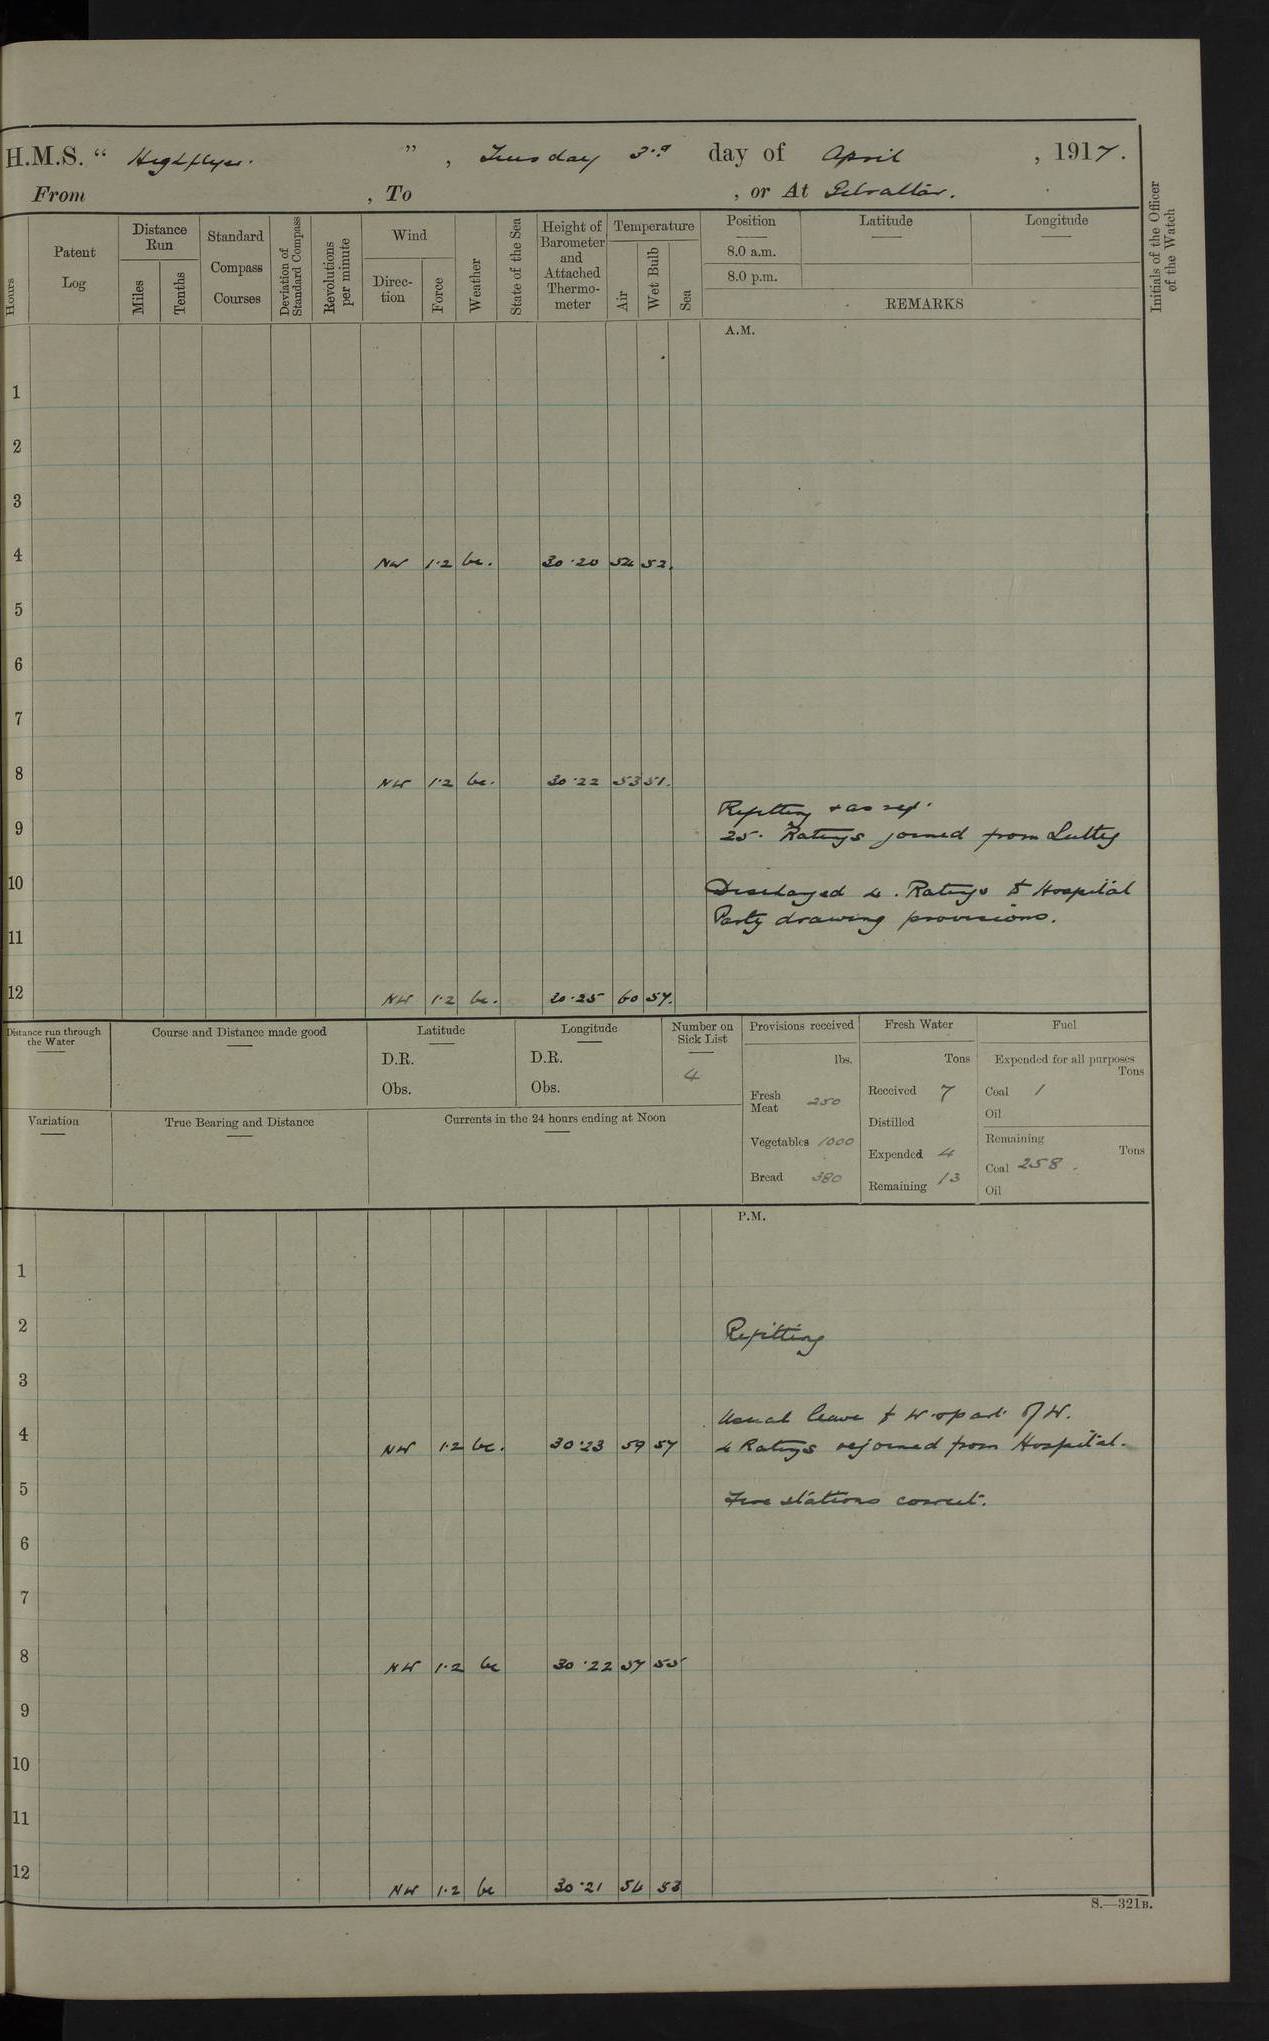 H.M.S. “ Highflyer. ” , Tuesday 3rd day of April , 1917.
From , To , or At Gibraltar.
Hours
Patent Log
Distance Run
Miles
Tenths
Standard Compass Courses
Deviation of Standard Compass
Revolutions per minute
Wind
Direction
Force
Weather
State of the Sea
Height of Barometer and Attached Thermometer
Temperature
Air
Wet Bulb
Sea
Position
8.0 a.m.
8.0 p.m.
Latitude
Longitude
REMARKS
Initials of the Officer of the Watch
A.M.
1
2
3
4 NW 1.2 bc. 30.20 54 52.
5
6
7
8 NW 1.2 bc. 30.22 53 51.
Refitting & as req.
9 25. Ratings joined from
10 Discharged 4. Ratings to Hospital
Party drawing provisions.
11
12 NW 1.2 bc. 30.25 60 57.
Distance run through the Water
Course and Distance made good
Latitude
D.R.
Obs.
Longitude
D.R.
Obs.
Number on Sick List
4
Provisions received
lbs.
Fresh Meat 250
Vegetables 1000
Bread 380
Fresh Water
Tons
Received 7
Distilled
Expended 4
Remaining 13
Fuel
Expended for all purposes
Tons
Coal 1
Oil
Remaining
Tons
Coal 258.
Oil
Variation
True Bearing and Distance
Currents in the 24 hours ending at Noon
P.M.
1
2 Refitting
3
Usual leave to W. of W.
4 NW 1.2 bc. 30.23 59 57 4 Ratings rejoined from Hospital.
5 Fire stations correct.
6
7
8 NW 1.2 bc 30.22 57 55
9
10
11
12 NW 1.2 bc 30.21 54 53
S.—321B.